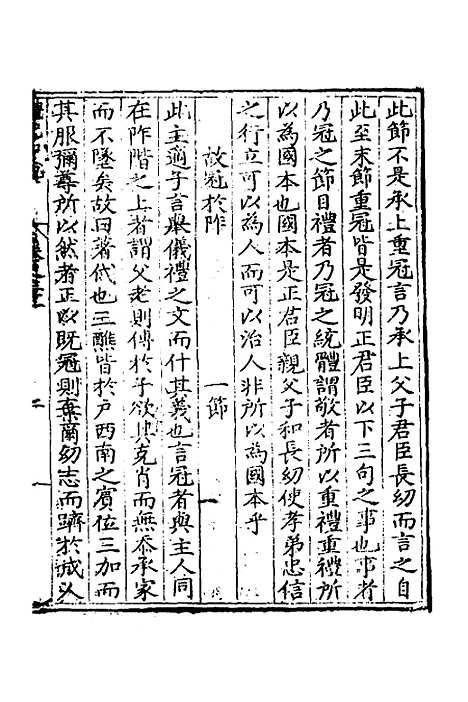 此節不是承上重冠言乃承上父子君臣長幼而言之自
此至末節重冠皆是發明正君臣以下三句之事也事者
乃冠之節目禮者乃冠之統體謂敬者所以重禮重禮所
以為國本也國本是正君臣親父子和長幼使孝弟忠信
之行立可以為人而可以治人非所以為國本乎
故冠於阼 一節
此主適子言舉儀禮之文而什其義也言冠者與主人同
在阼階之上者謂父老則傳於子欲其克肖而無忝承家
而不墜矣故曰著代也三醮皆於戶西南之賓位三加而
其服彌尊所以然者正以既冠則棄蘭幼志而躋於成人